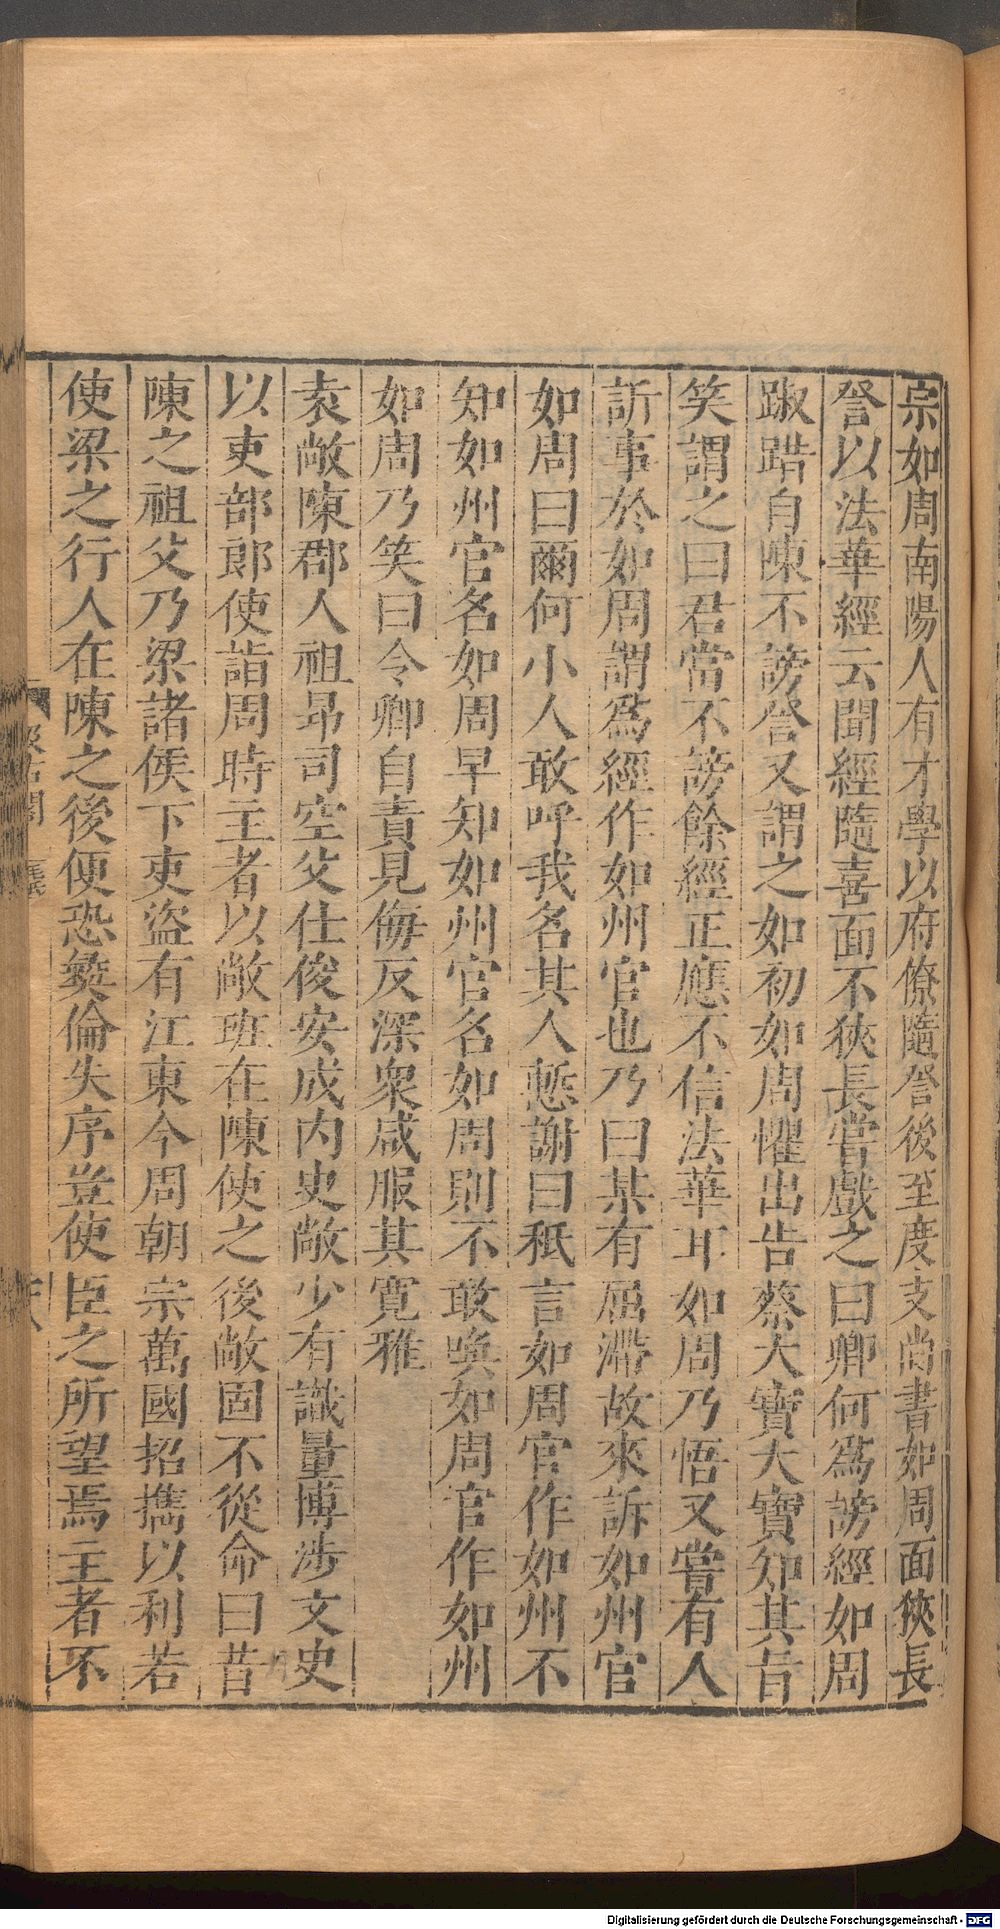 宗如周南陽人有才學以府僚隨詧後至度支尚書如周面狹長
詧以法華經云聞經隨喜面不狹長嘗戲之曰卿何爲謗經如周
踧踖自陳不謗詧又謂之如初如周懼出告蔡大寶大寶知其旨
笑謂之曰君當不謗餘經正應不信法華耳如周乃悟又嘗有人
訴事於如周謂爲經作如州官也乃曰某有屈滯故來訴如州官
如周曰爾何小人敢呼我名其人慙謝曰秖言如周官作如州不
知如州官名如周早知如州官名如周則不敢喚如周官作如州
如周乃笑曰令卿自責見侮反深衆咸服其寬雅
袁敞陳郡人祖昂司空父仕俊安成内史敞少有識量博涉文史
以吏部郎使詣周時主者以敞班在陳使之後敞固不從命曰昔
陳之祖父乃梁諸侯下吏盜有江東今周朝宗萬國招攜以利若
使梁之行人在陳之後便恐彝倫失序豈使臣之所望焉主者不
Digitalisierung gefördert durch die Deutsche Forschungsgemeinschaft - DFG